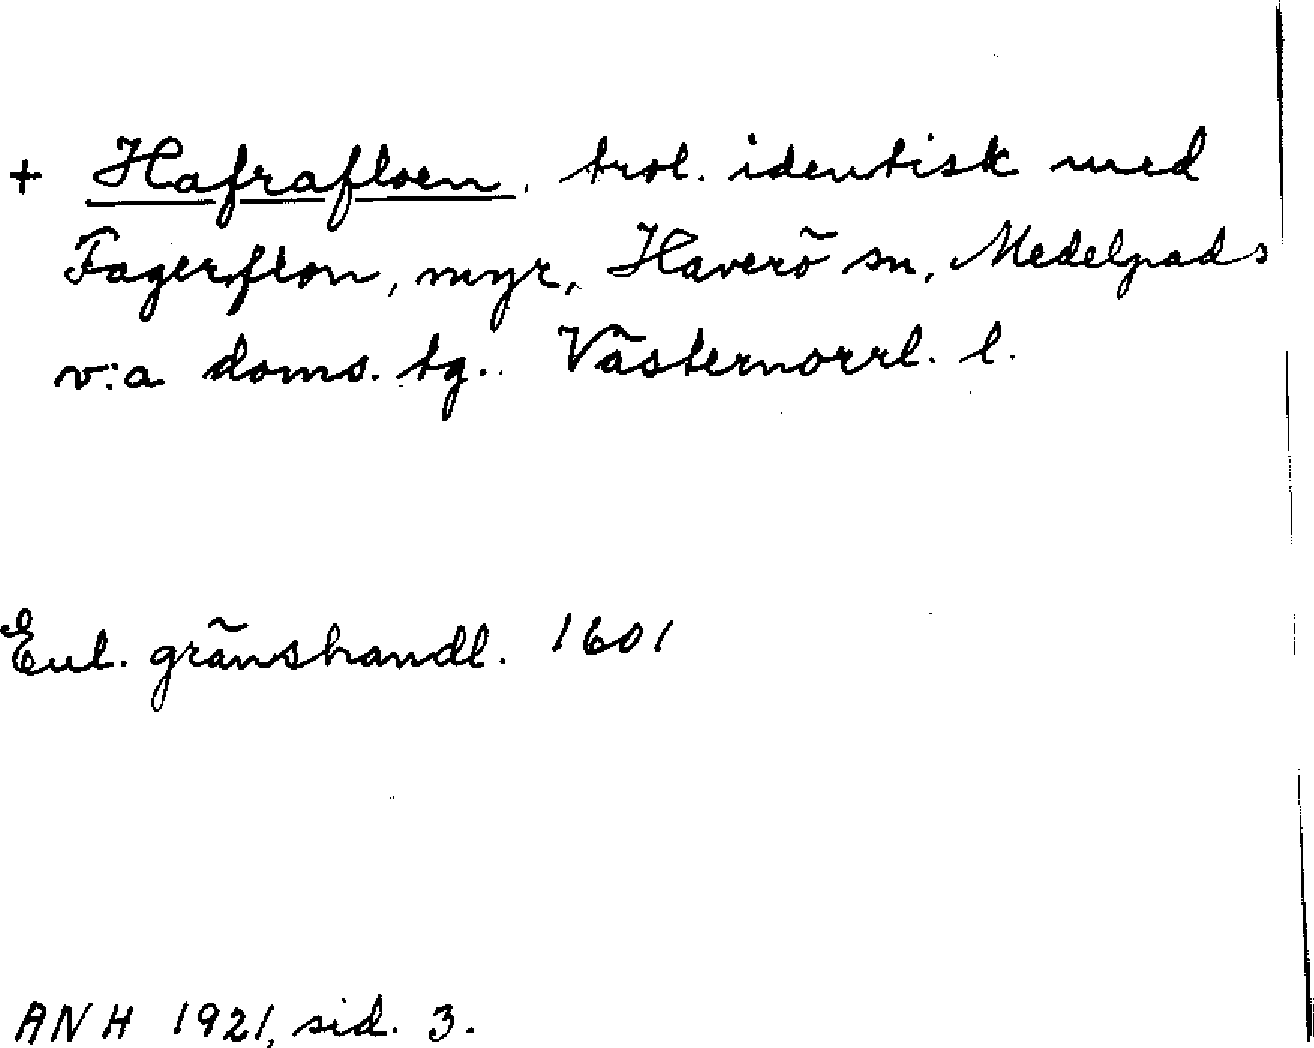 + Hafrafloen, trol. identisk med
Fagerflon, myr, Haverö sn, Medelpads
v:a doms. tg. Västernorrl. l.
Enl. gränshandl. 1601
ANH 1921, sid. 3.